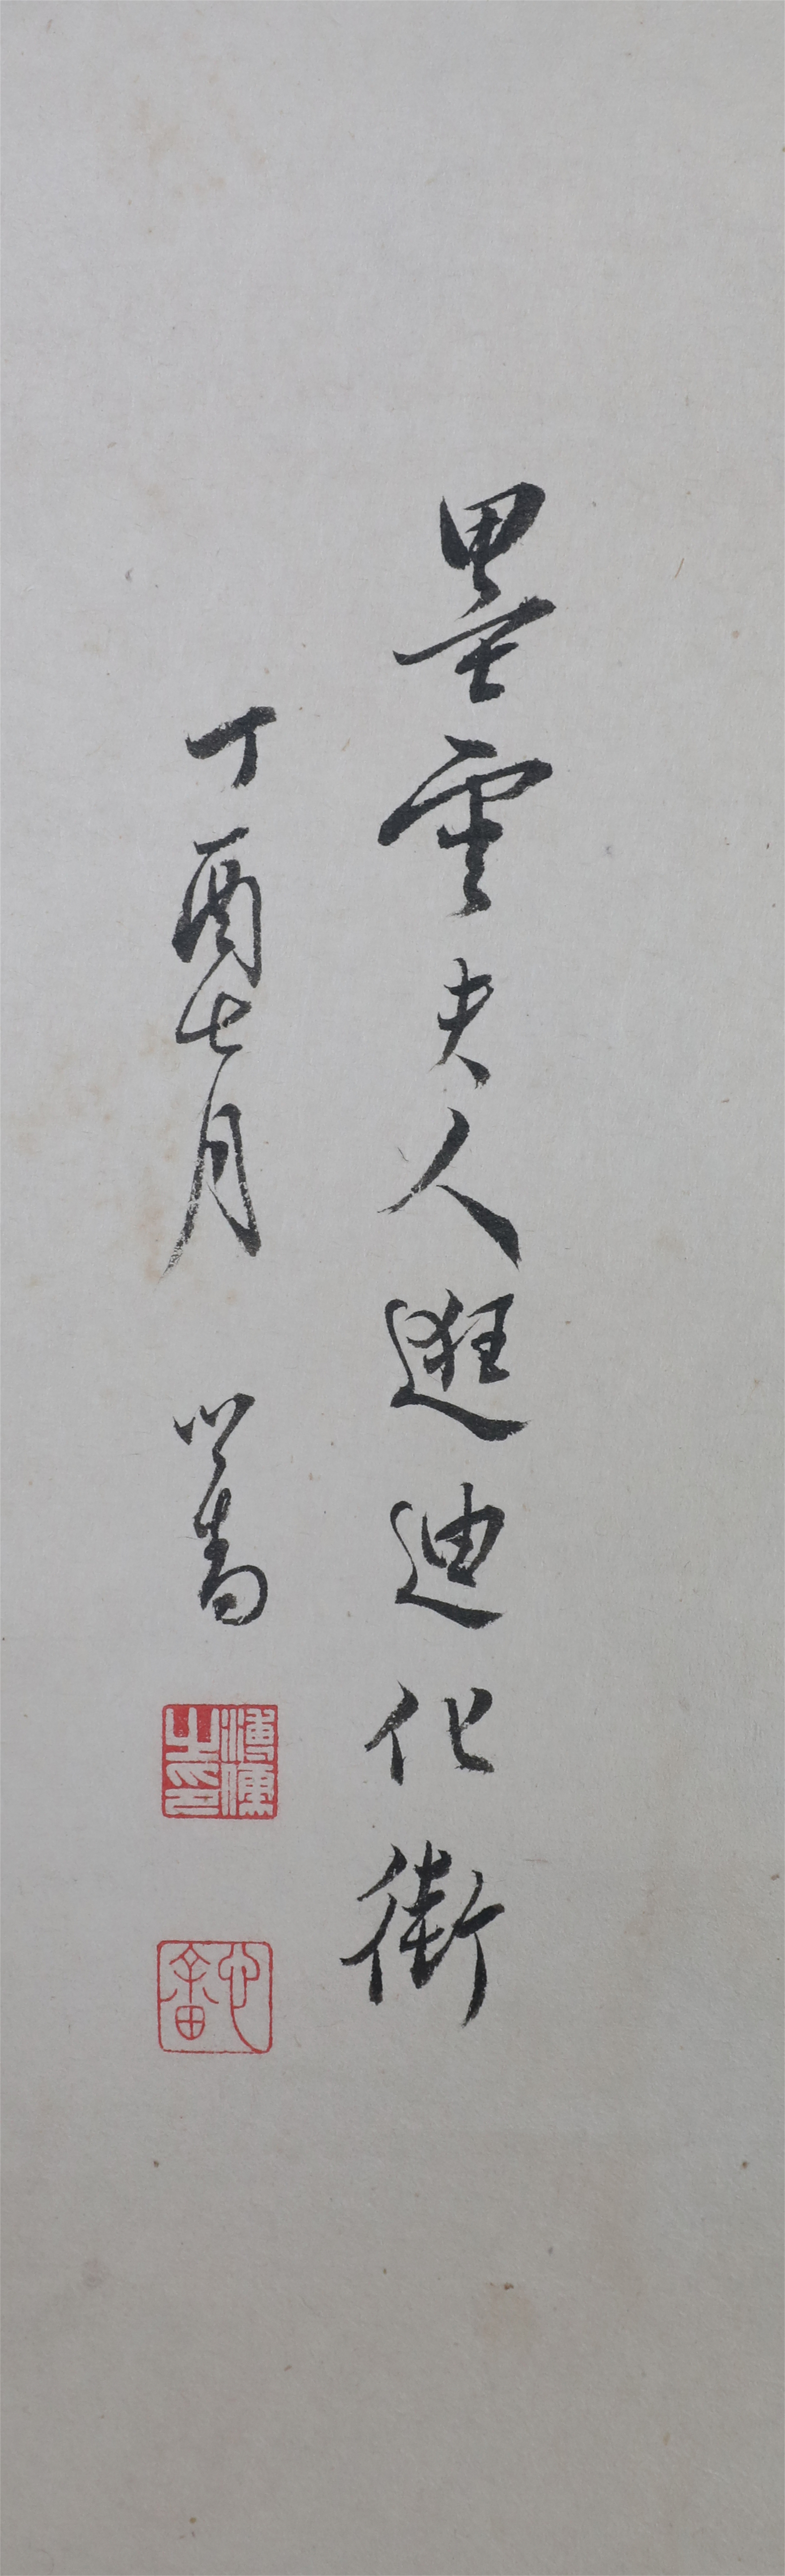 墨雲夫人逛迪化街
丁酉七月 心畬
溥儒之印
心畬